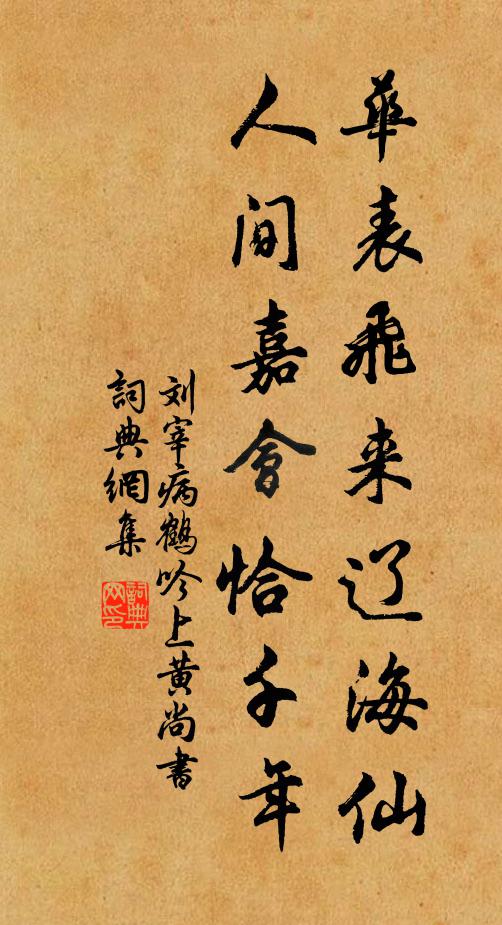 華表飛来辽海仙
人间嘉會恰千年
刘宰病鶴吟上黄尚書
詞典網集
詞典
网印